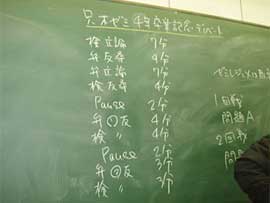 兄木ゼミ 卒業記念ディベート
検立論 7分
弁反尋 4分
弁立論 7分
検反尋 4分
Pause 2分
弁①反 4分
検 〃 4分
Pause 2分
弁②反 3分
検 〃 3分
1回戦
問題A
2回戦